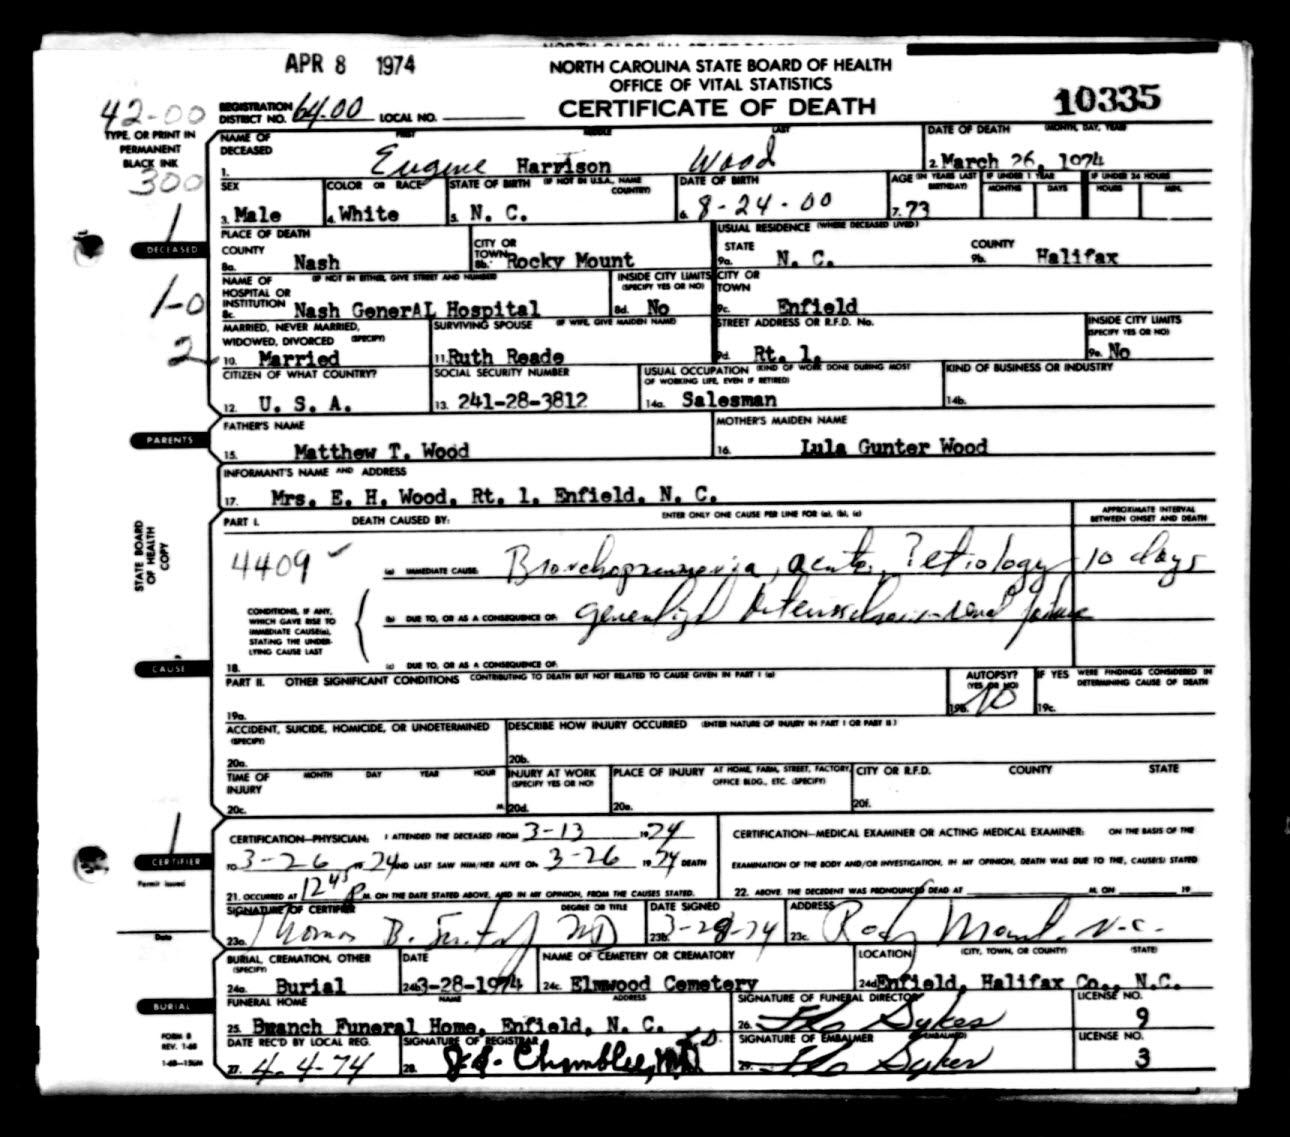 APR 8 1974
NORTH CAROLINA STATE BOARD OF HEALTH
OFFICE OF VITAL STATISTICS
CERTIFICATE OF DEATH
10335
42-00
REGISTRATION DISTRICT NO. 64.00 LOCAL NO.
TYPE, OR PRINT IN PERMANENT BLACK INK
300
NAME OF DECEASED FIRST MIDDLE LAST DATE OF DEATH (MONTH, DAY, YEAR)
1. Eugene Harrison Wood 2. March 26, 1974
SEX COLOR OR RACE STATE OF BIRTH (IF NOT IN U.S.A., NAME COUNTRY) DATE OF BIRTH AGE (IN YEARS LAST BIRTHDAY) IF UNDER 1 YEAR MONTHS DAYS IF UNDER 24 HOURS HOURS MIN.
3. Male 4. White 5. N. C. 6. 8-24-00 7. 73
1
DECEASED
PLACE OF DEATH USUAL RESIDENCE (WHERE DECEASED LIVED)
COUNTY CITY OR TOWN STATE COUNTY
8a. Nash 8b. Rocky Mount 9a. N. C. 9b. Halifax
1-0
NAME OF HOSPITAL OR INSTITUTION (IF NOT IN EITHER, GIVE STREET AND NUMBER) INSIDE CITY LIMITS (SPECIFY YES OR NO) CITY OR TOWN
8c. Nash GenerAL Hospital 8d. No 9c. Enfield
MARRIED, NEVER MARRIED, WIDOWED, DIVORCED (SPECIFY) SURVIVING SPOUSE (IF WIFE, GIVE MAIDEN NAME) STREET ADDRESS OR R.F.D. No. INSIDE CITY LIMITS (SPECIFY YES OR NO)
2 10. Married 11. Ruth Reade 9d. Rt. 1. 9e. No
CITIZEN OF WHAT COUNTRY? SOCIAL SECURITY NUMBER USUAL OCCUPATION (KIND OF WORK DONE DURING MOST OF WORKING LIFE, EVEN IF RETIRED) KIND OF BUSINESS OR INDUSTRY
12. U. S. A. 13. 241-28-3812 14a. Salesman 14b.
PARENTS
FATHER'S NAME MOTHER'S MAIDEN NAME
15. Matthew T. Wood 16. Lula Gunter Wood
INFORMANT'S NAME AND ADDRESS
17. Mrs. E. H. Wood, Rt. 1, Enfield, N. C.
STATE BOARD OF HEALTH COPY
PART I. DEATH CAUSED BY: ENTER ONLY ONE CAUSE PER LINE FOR (a), (b), (c) APPROXIMATE INTERVAL BETWEEN ONSET AND DEATH
4409 (a) IMMEDIATE CAUSE: Bronchopneumonia, acute, ? etiology 10 days
CONDITIONS, IF ANY, WHICH GAVE RISE TO IMMEDIATE CAUSE(a), STATING THE UNDERLYING CAUSE LAST
(b) DUE TO, OR AS A CONSEQUENCE OF: renal failure
CAUSE
18. (c) DUE TO, OR AS A CONSEQUENCE OF:
PART II. OTHER SIGNIFICANT CONDITIONS CONTRIBUTING TO DEATH BUT NOT RELATED TO CAUSE GIVEN IN PART I (a) AUTOPSY? (YES OR NO) IF YES WERE FINDINGS CONSIDERED IN DETERMINING CAUSE OF DEATH
19a. 19b. No 19c.
ACCIDENT, SUICIDE, HOMICIDE, OR UNDETERMINED (SPECIFY) DESCRIBE HOW INJURY OCCURRED (ENTER NATURE OF INJURY IN PART I OR PART II)
20a. 20b.
TIME OF INJURY MONTH DAY YEAR HOUR INJURY AT WORK (SPECIFY YES OR NO) PLACE OF INJURY AT HOME, FARM, STREET, FACTORY, OFFICE BLDG., ETC. (SPECIFY) CITY OR R.F.D. COUNTY STATE
20c. M. 20d. 20e. 20f.
1
CERTIFIER
Permit issued
Date
CERTIFICATION—PHYSICIAN: I ATTENDED THE DECEASED FROM 3-13 1974
TO 3-26 1974 AND LAST SAW HIM/HER ALIVE ON 3-26 1974 DEATH
21. OCCURRED AT 1245 P M. ON THE DATE STATED ABOVE, AND IN MY OPINION, FROM THE CAUSES STATED.
CERTIFICATION—MEDICAL EXAMINER OR ACTING MEDICAL EXAMINER: ON THE BASIS OF THE
EXAMINATION OF THE BODY AND/OR INVESTIGATION, IN MY OPINION, DEATH WAS DUE TO THE, CAUSE(S) STATED
22. ABOVE. THE DECEDENT WAS PRONOUNCED DEAD AT M. ON 19
SIGNATURE OF CERTIFIER DEGREE OR TITLE DATE SIGNED ADDRESS
23a. Thomas B. MD 23b. 3-28-74 23c. Rocky Mount, N.C.
BURIAL, CREMATION, OTHER (SPECIFY) DATE NAME OF CEMETERY OR CREMATORY LOCATION (CITY, TOWN, OR COUNTY) (STATE)
24a. Burial 24b. 3-28-1974 24c. Elmwood Cemetery 24d. Enfield, Halifax Co., N.C.
BURIAL
FUNERAL HOME NAME ADDRESS SIGNATURE OF FUNERAL DIRECTOR LICENSE NO.
25. Branch Funeral Home, Enfield, N. C. 26. Flo Sykes 9
FORM 8
REV. 1-68
DATE REC'D BY LOCAL REG. SIGNATURE OF REGISTRAR SIGNATURE OF EMBALMER (IF EMBALMED) LICENSE NO.
27. 4-4-74 28. J.S. Chamblee, MD 29. Flo Sykes 3